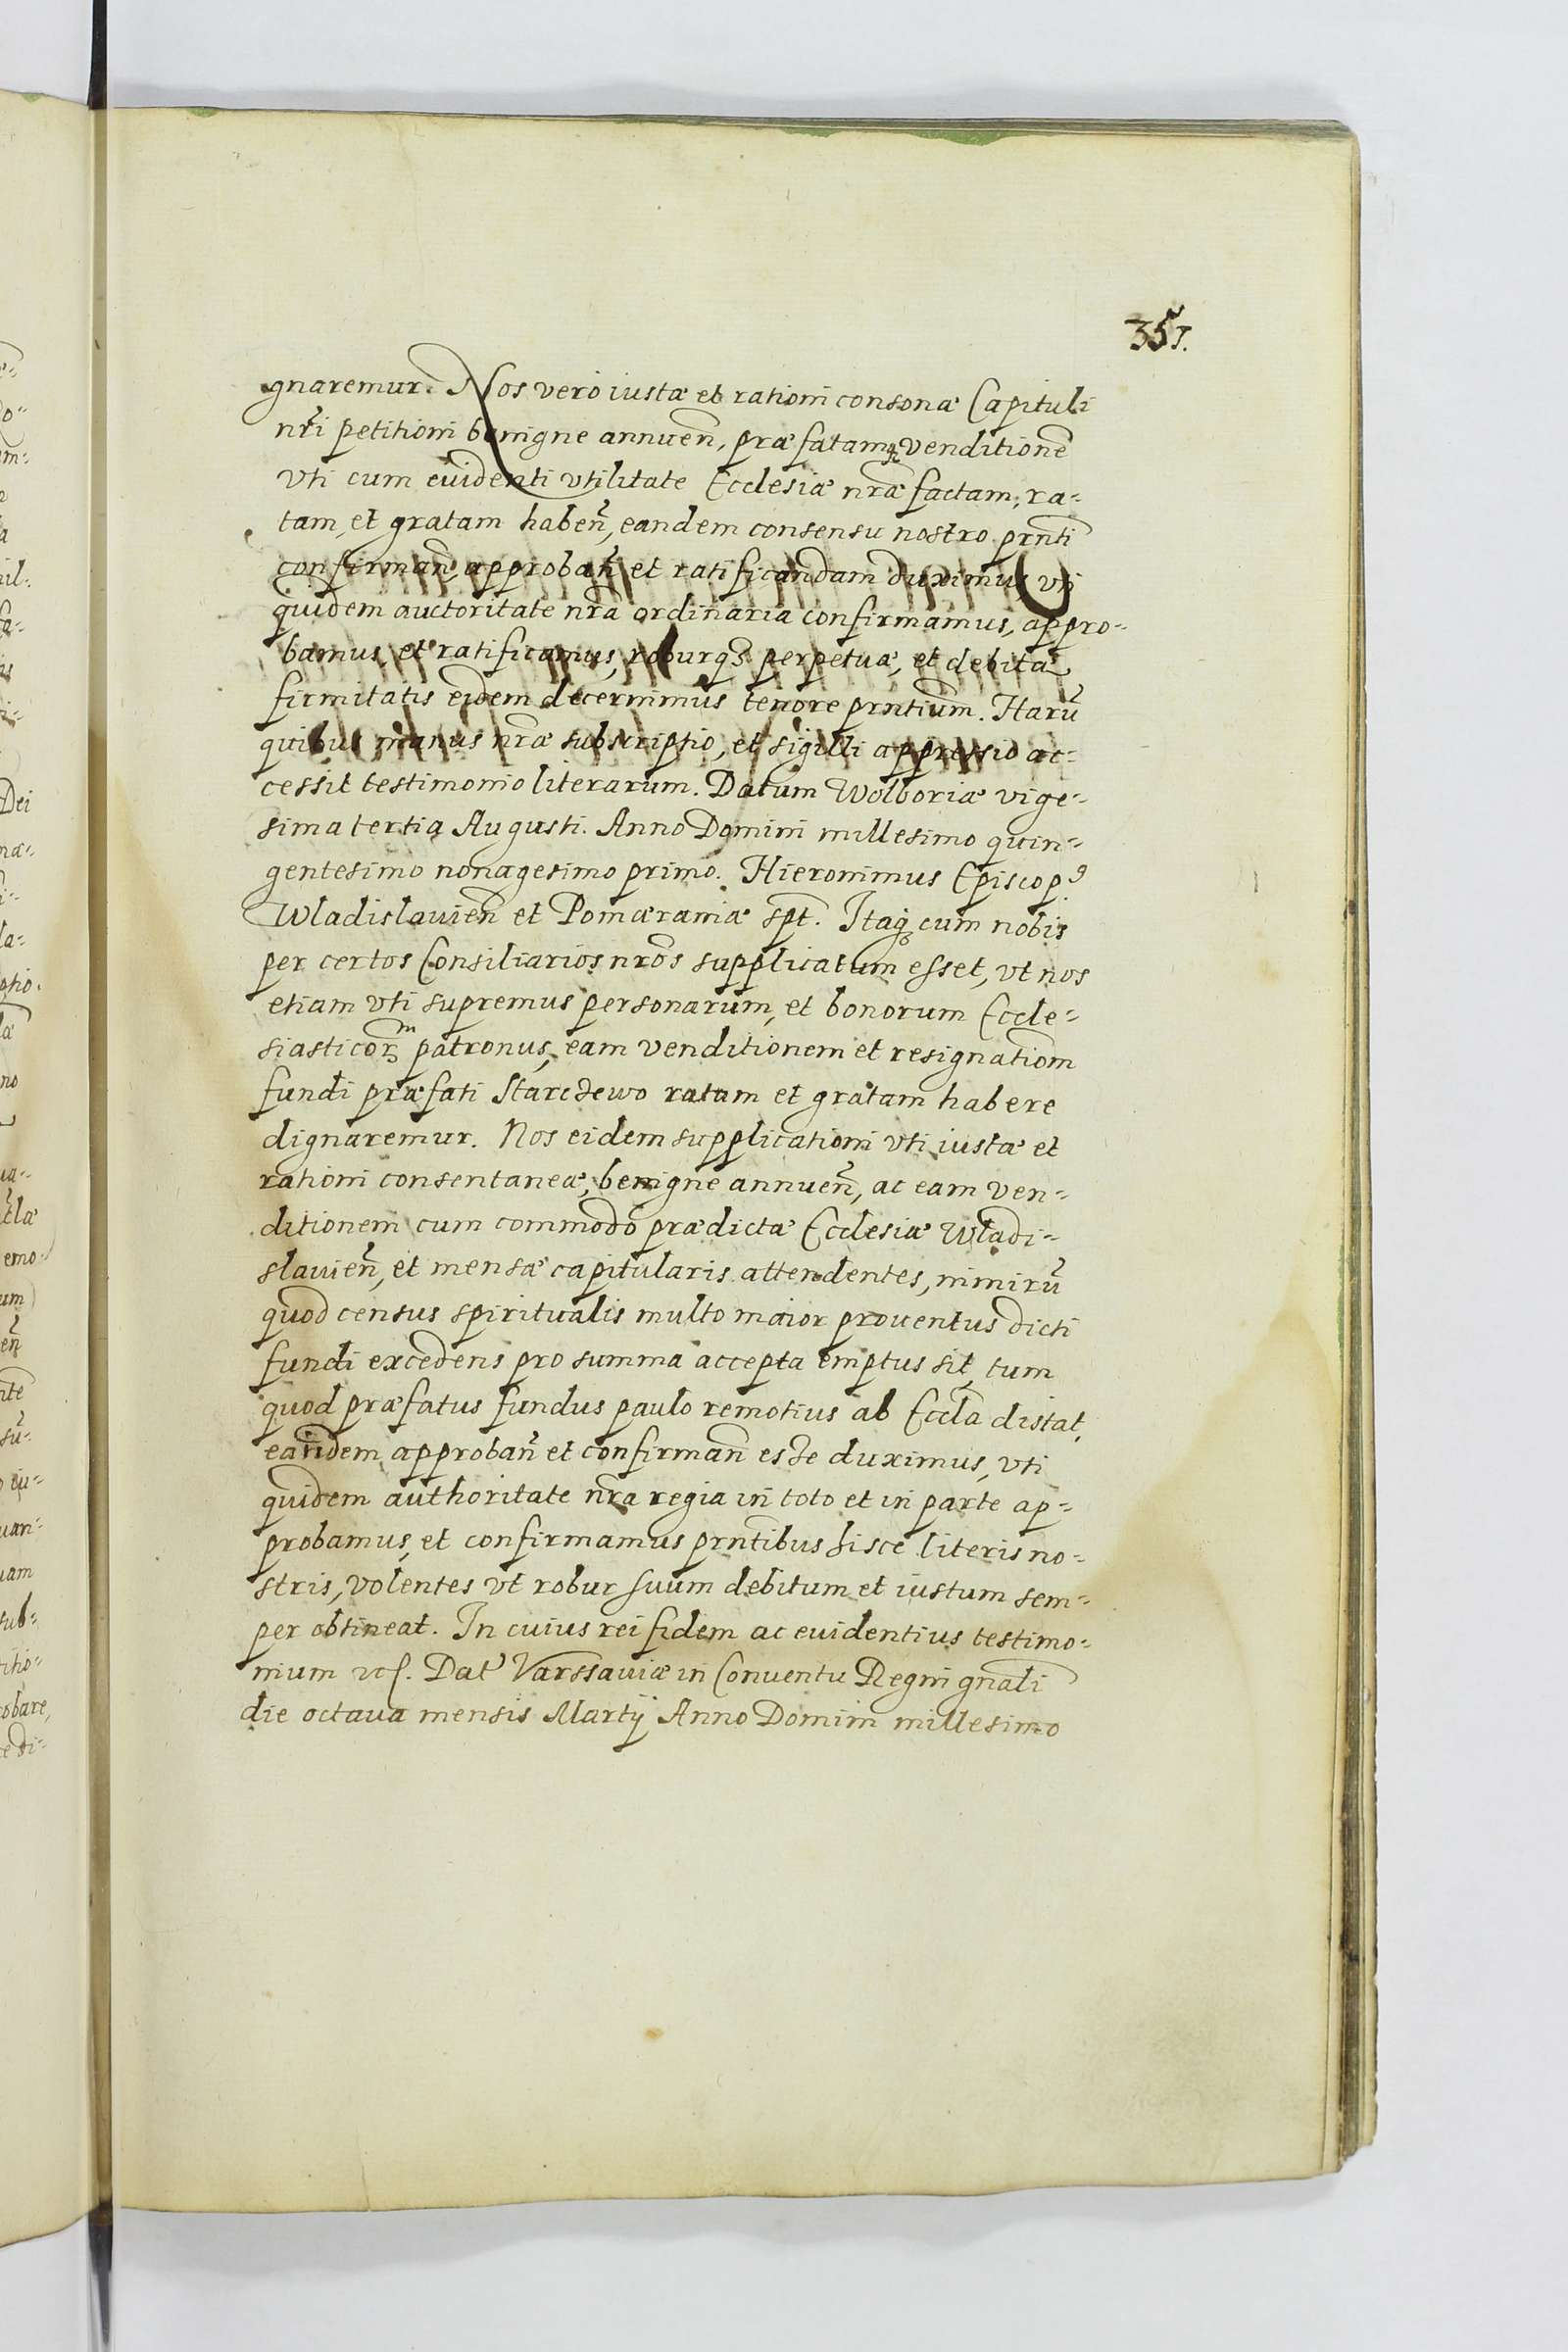 351.
gnaremur. Nos vero iustæ et rationi consonæ Capituli
nr̃i petitioni benigne annuen̄, præfatamq venditionē
vti cum euidenti vtilitate Ecclesiæ nr̄æ factam, ra-
tam, et gratam haben̄, eandem consensu nostro prn̄ti
confirman̄, approban̄ et ratificandam duximus, vti
quidem auctoritate nr̄a ordinaria confirmamus, appro-
bamus, et ratificamus, roburqȝ perpetuæ, et debitæ
firmitatis eidem decernimus tenore prn̄tium. Harū
quibus manus nr̄æ subscriptio, et sigilli appressio ac-
cessit testimonio literarum. Datum Wolboriæ vige-
sima tertia Augusti. Anno Domini millesimo quin-
gentesimo nonagesimo primo. Hieronimus Episcopꝰ
Wladislauien̄ et Pomæraniæ spt̄. Itaqȝ cum nobis
per certos Consiliarios nr̄os supplicatum esset, vt nos
etiam vti supremus personarum, et bonorum Eccle-
siasticorm̄ patronus, eam venditionem et resignatiom̄
fundi præfati Starczewo ratam et gratam habere
dignaremur. Nos eidem supplicationi vti iustæ et
rationi consentaneæ, benigne annuen̄, ac eam ven-
ditionem cum commodo prædictæ Ecclesiæ Wladi-
slauien̄, et mensæ capitularis attendentes, nimirū
quod census spiritualis multo maior prouentus dicti
fundi excedens pro summa accepta emptus sit, tum
quod præfatus fundus paulo remotius ab Eccl̄a distat,
eandem approban̄ et confirman̄ esse duximus, vti
quidem authoritate nr̄a regia in toto et in parte ap-
probamus, et confirmamus prn̄tibus hisce literis no-
stris, volentes vt robur suum debitum et iustum sem-
per obtineat. In cuius rei fidem ac euidentius testimo-
nium etc. Dat̄ Varssauiæ in Conuentu Regni gn̄ali
die octaua mensis Martij Anno Domini millesimo